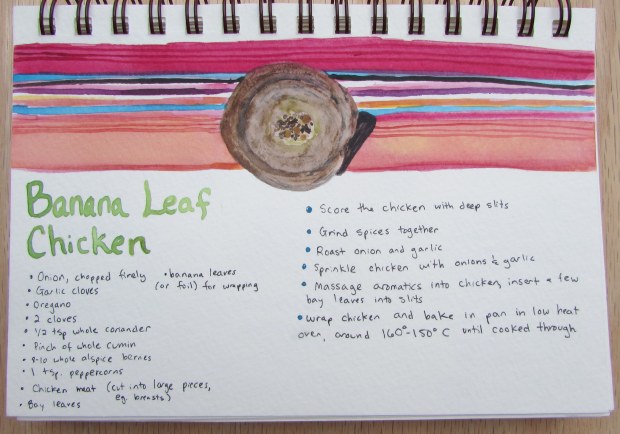 Banana Leaf
Chicken
• Onion, chopped finely
• Garlic cloves
• Oregano
• 2 cloves
• 1/2 tsp whole coriander
• Pinch of whole cumin
• 8-10 whole alspice berries
• 1 tsp. peppercorns
• Chicken meat (cut into large pieces,
eg. breasts)
• Bay leaves
• banana leaves
(or foil) for wrapping
• Score the chicken with deep slits
• Grind spices together
• Roast onion and garlic
• Sprinkle chicken with onions & garlic
• Massage aromatics into chicken, insert a few
bay leaves into slits
• Wrap chicken and bake in pan in low heat
oven, around 160°-150° C until cooked through